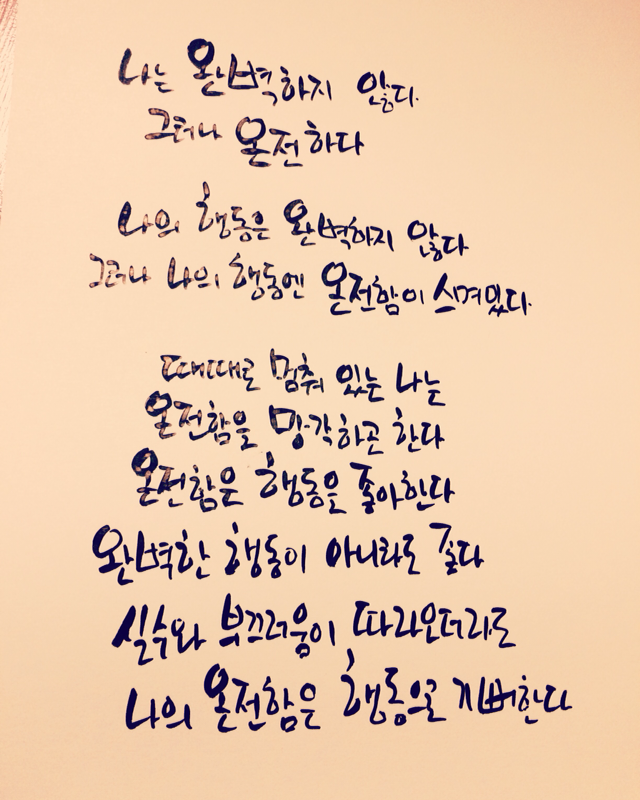 나는 완벽하지 않다.
그러나 온전하다
나의 행동은 완벽하지 않다
그러나 나의 행동엔 온전함이 스며있다.
때때로 멈춰 있는 나는
온전함을 망각하곤 한다
온전함은 행동을 좋아한다
완벽한 행동이 아니라도 좋다
실수와 부끄러움이 따라온더라도
나의 온전함은 행동으로